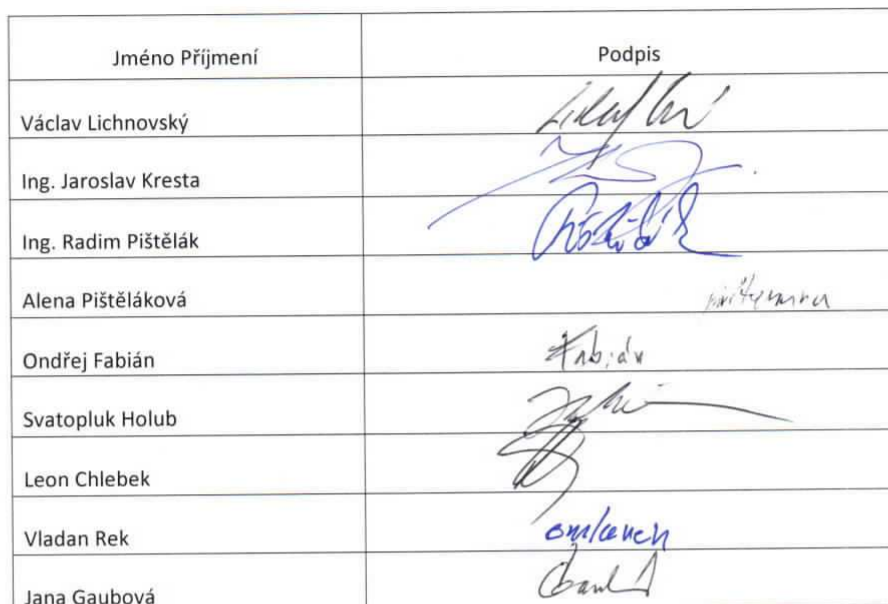 Jméno Příjmení Podpis
Václav Lichnovský
Ing. Jaroslav Kresta
Ing. Radim Pištělák
Alena Pištěláková
Ondřej Fabián Fabián
Svatopluk Holub
Leon Chlebek
Vladan Rek omluven
Jana Gaubová